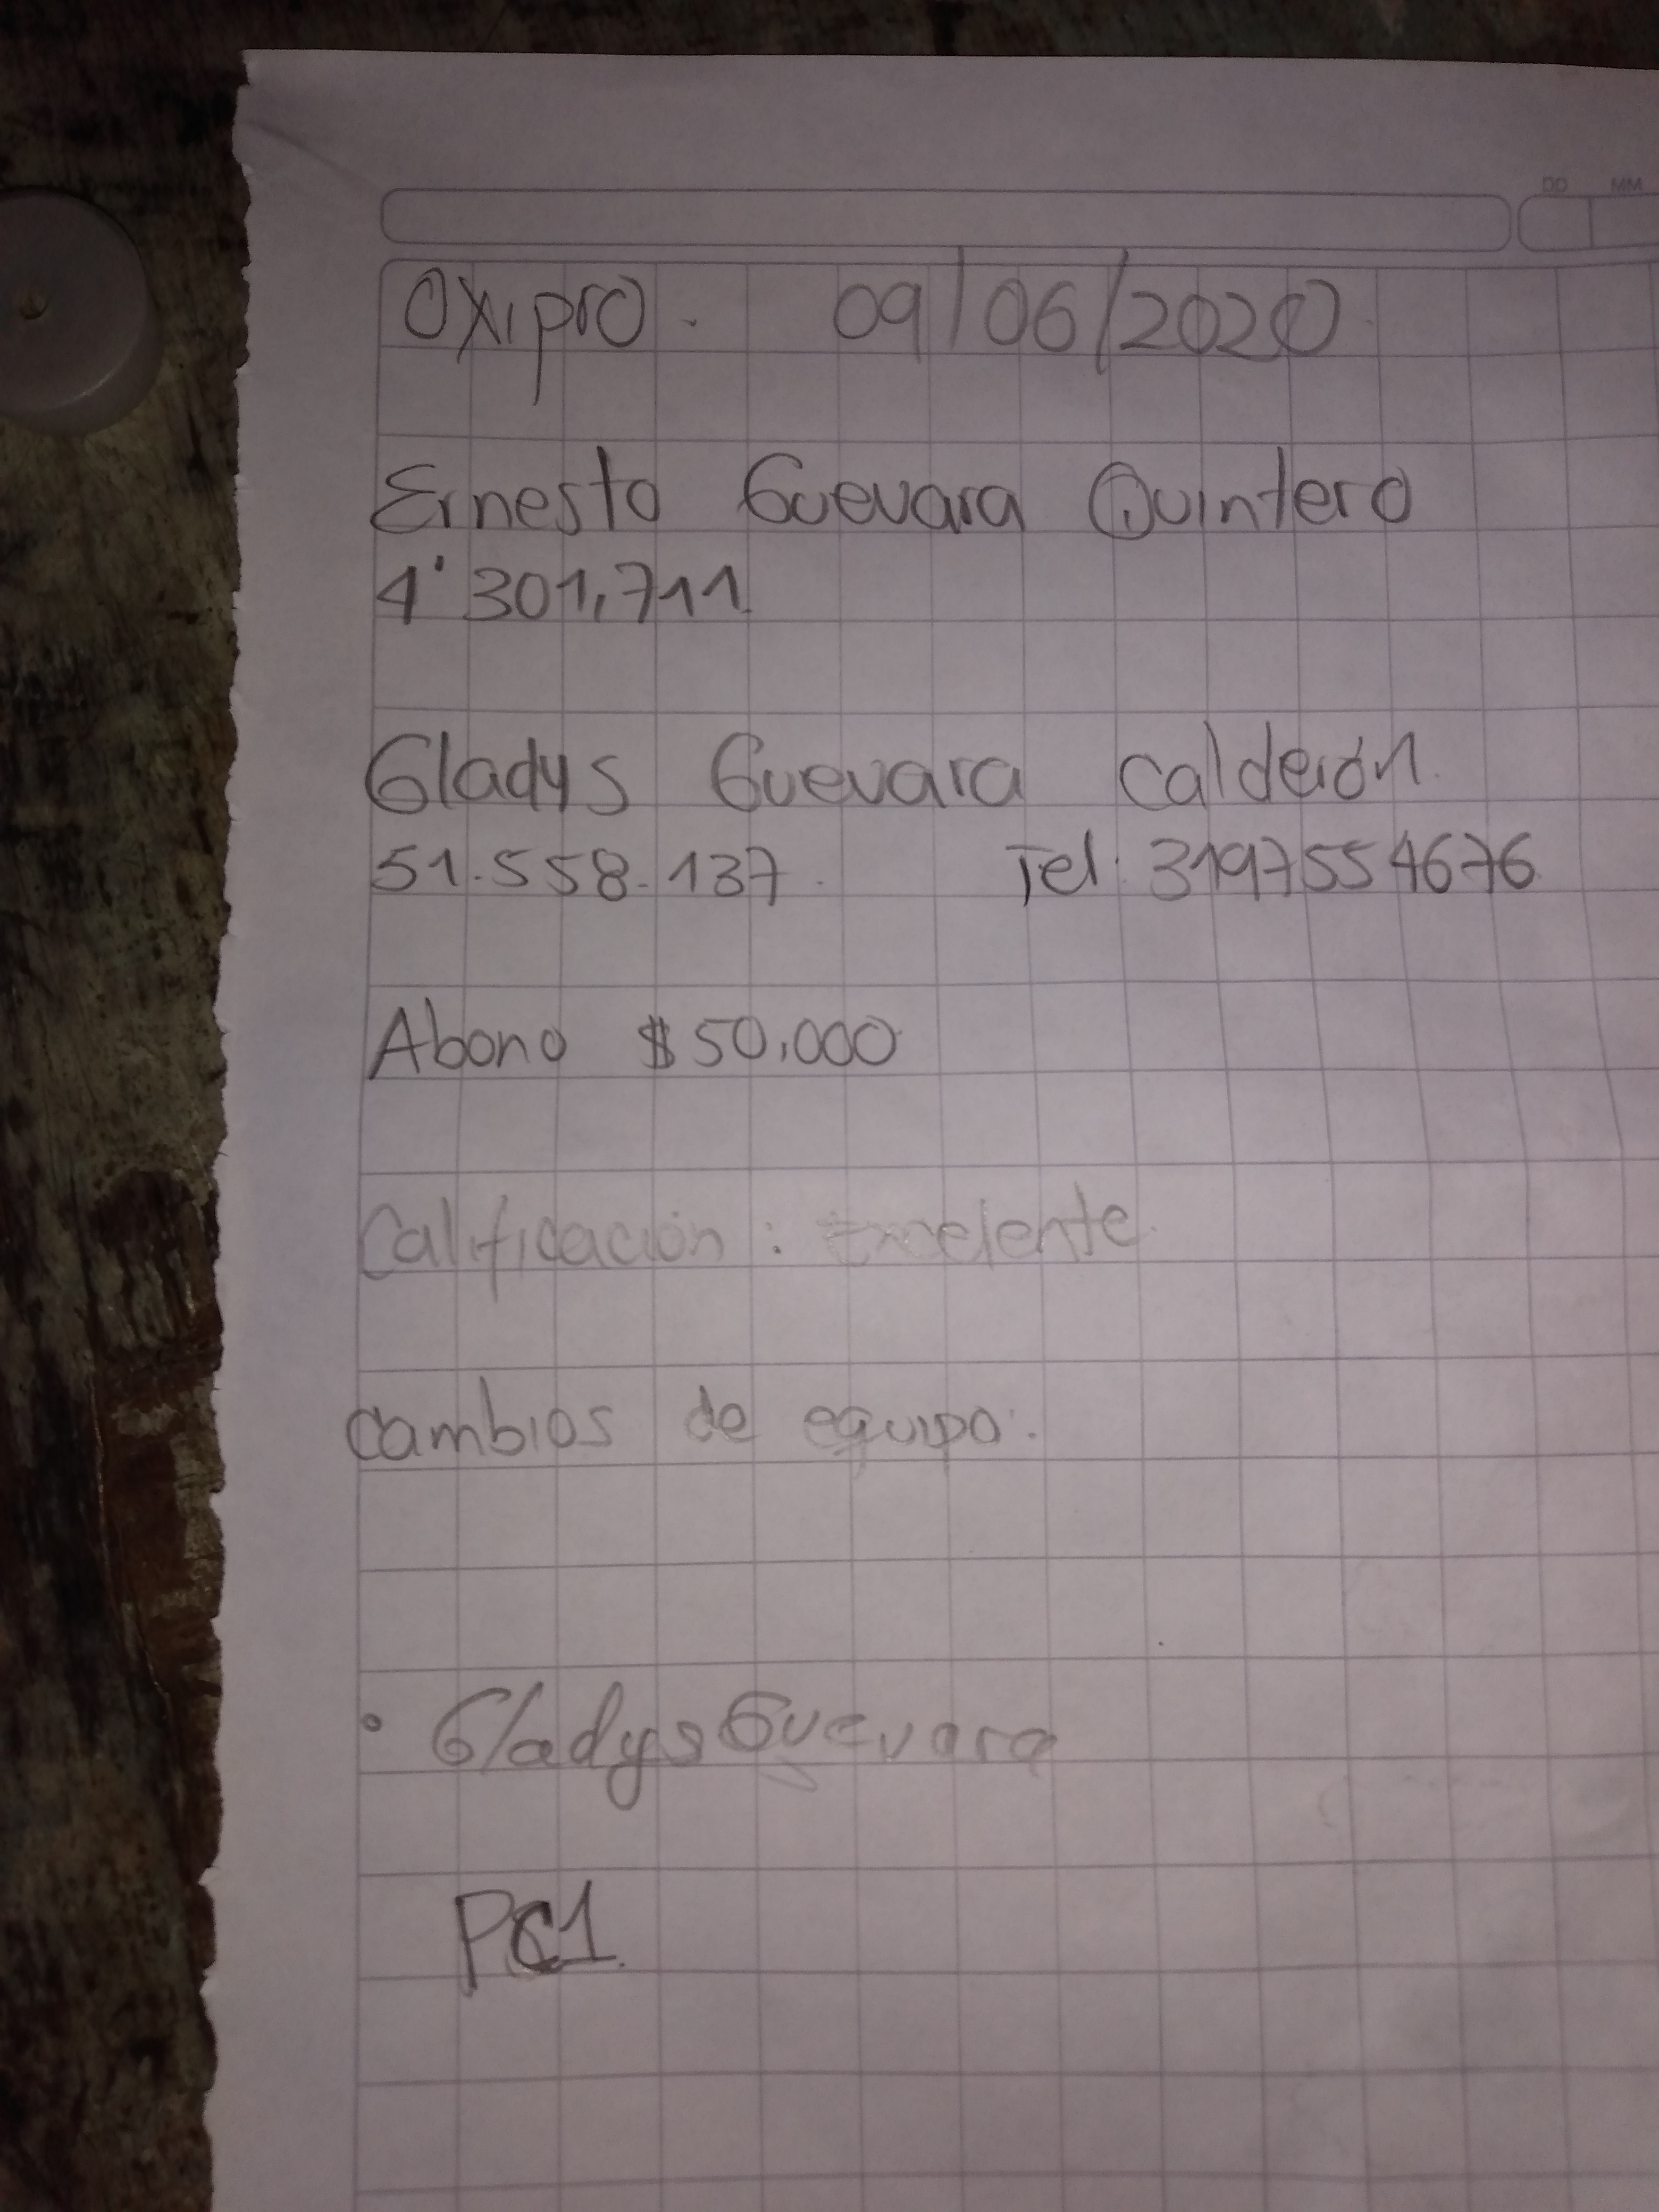 DD MM
Oxipro. 09/06/2020
Ernesto Guevara Quintero
4'301,711
Gladys Guevara Calderón.
51.558.137. Tel: 3197554676
Abono $50,000
Calificación: Excelente.
Cambios de equipo:
• Gladys Guevara
PC1.